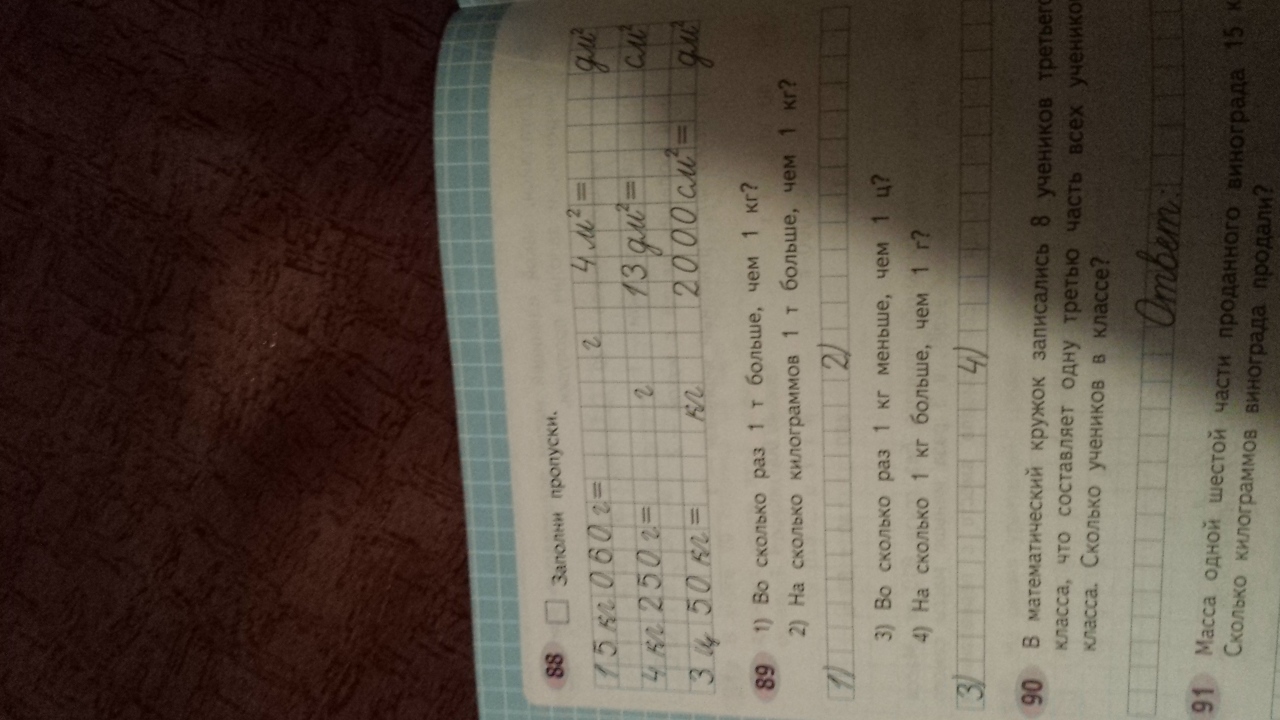 88 Заполни пропуски.
15 кг 060 г= г 4 м²= дм²
4 кг 250 г= г 13 дм²= см²
3 ц 50 кг= кг 2000 см²= дм²
89 1) Во сколько раз 1 т больше, чем 1 кг?
2) На сколько килограммов 1 т больше, чем 1 кг?
1) 2)
3) Во сколько раз 1 кг меньше, чем 1 ц?
4) На сколько 1 кг больше, чем 1 г?
3) 4)
90 В математический кружок записались 8 учеников третьего
класса, что составляет одну третью часть всех учеников
класса. Сколько учеников в классе?
Ответ:
91 Масса одной шестой части проданного винограда 15 к
Сколько килограммов винограда продали?